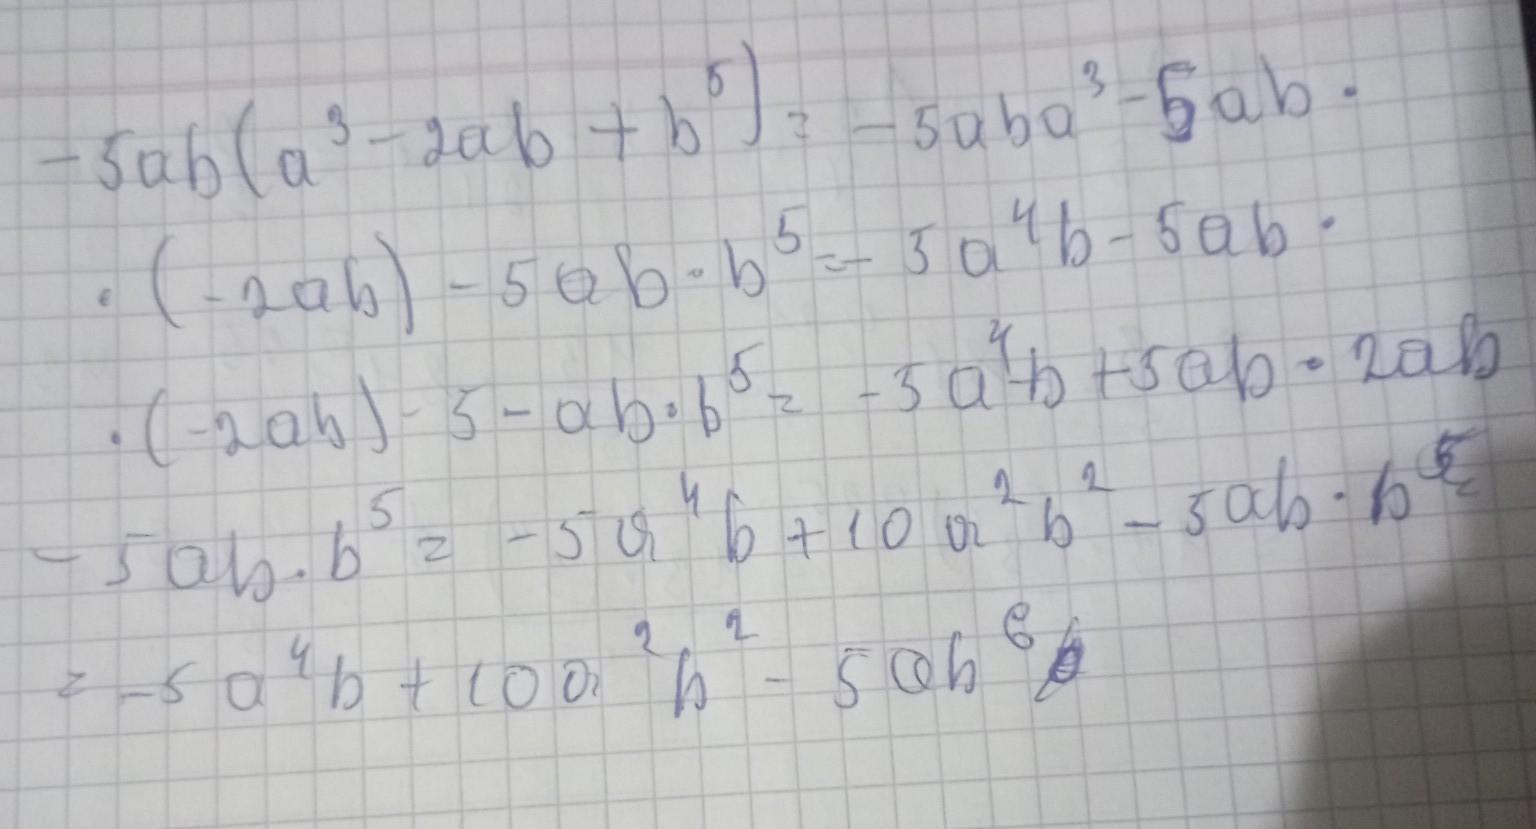 -5ab(a³-2ab+b⁵)=-5aba³-5ab·
·(-2ab)-5ab·b⁵=-5a⁴b-5ab·
·(-2ab)-5-ab·b⁵=-5a⁴b+5ab·2ab
-5ab·b⁵=-5a⁴b+10a²b²-5ab·b⁵=
=-5a⁴b+10a²b²-5ab⁶